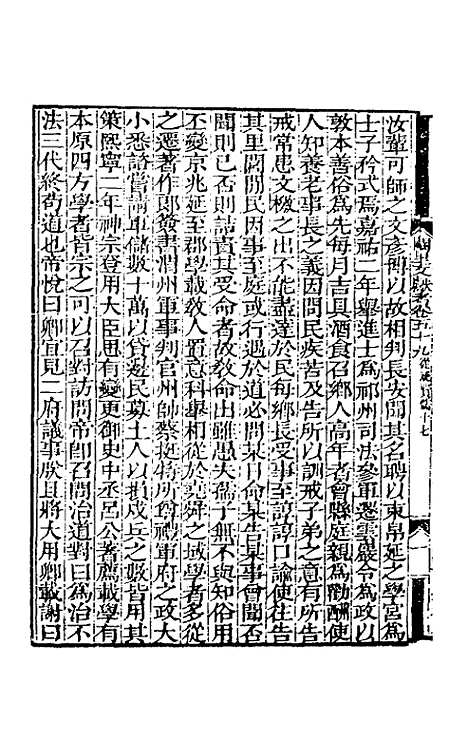 汝輩可師之文彥博以故相判長安聞其名聘以束帛延之學宮為
士子矜式焉嘉祐二年舉進士為祁州司法參軍遷雲巖令為政以
敦本善俗為先每月吉具酒食召鄉人高年者會縣庭親為勸酬使
人知養老事長之義因問民疾苦及告所以訓戒子弟之意有所告
戒常患文檄之出不能盡達於民每鄉長受事至諄諄口諭使往告
其里閭閒民因事至庭或行遇於道必問某日命某告某事曾聞否
聞則已否則詰責其受命者故教命出雖愚夫孺子無不與知俗用
丕變京兆延至郡學載敎人置意科舉相從於堯舜之域學者多從
之遷著作郎簽書渭州軍事判官州帥蔡挺特所尊禮軍府之政大
小悉諮嘗請軍儲數十萬以貸邊民募土人以損戍兵之數皆用其
策熙寧二年神宗登用大臣思有變更御史中丞呂公著薦載學有
本原四方學者皆宗之可以召對訪問帝即召問治道對曰為治不
法三代終苟道也帝悅曰卿宜見二府議事朕且將大用卿載謝曰